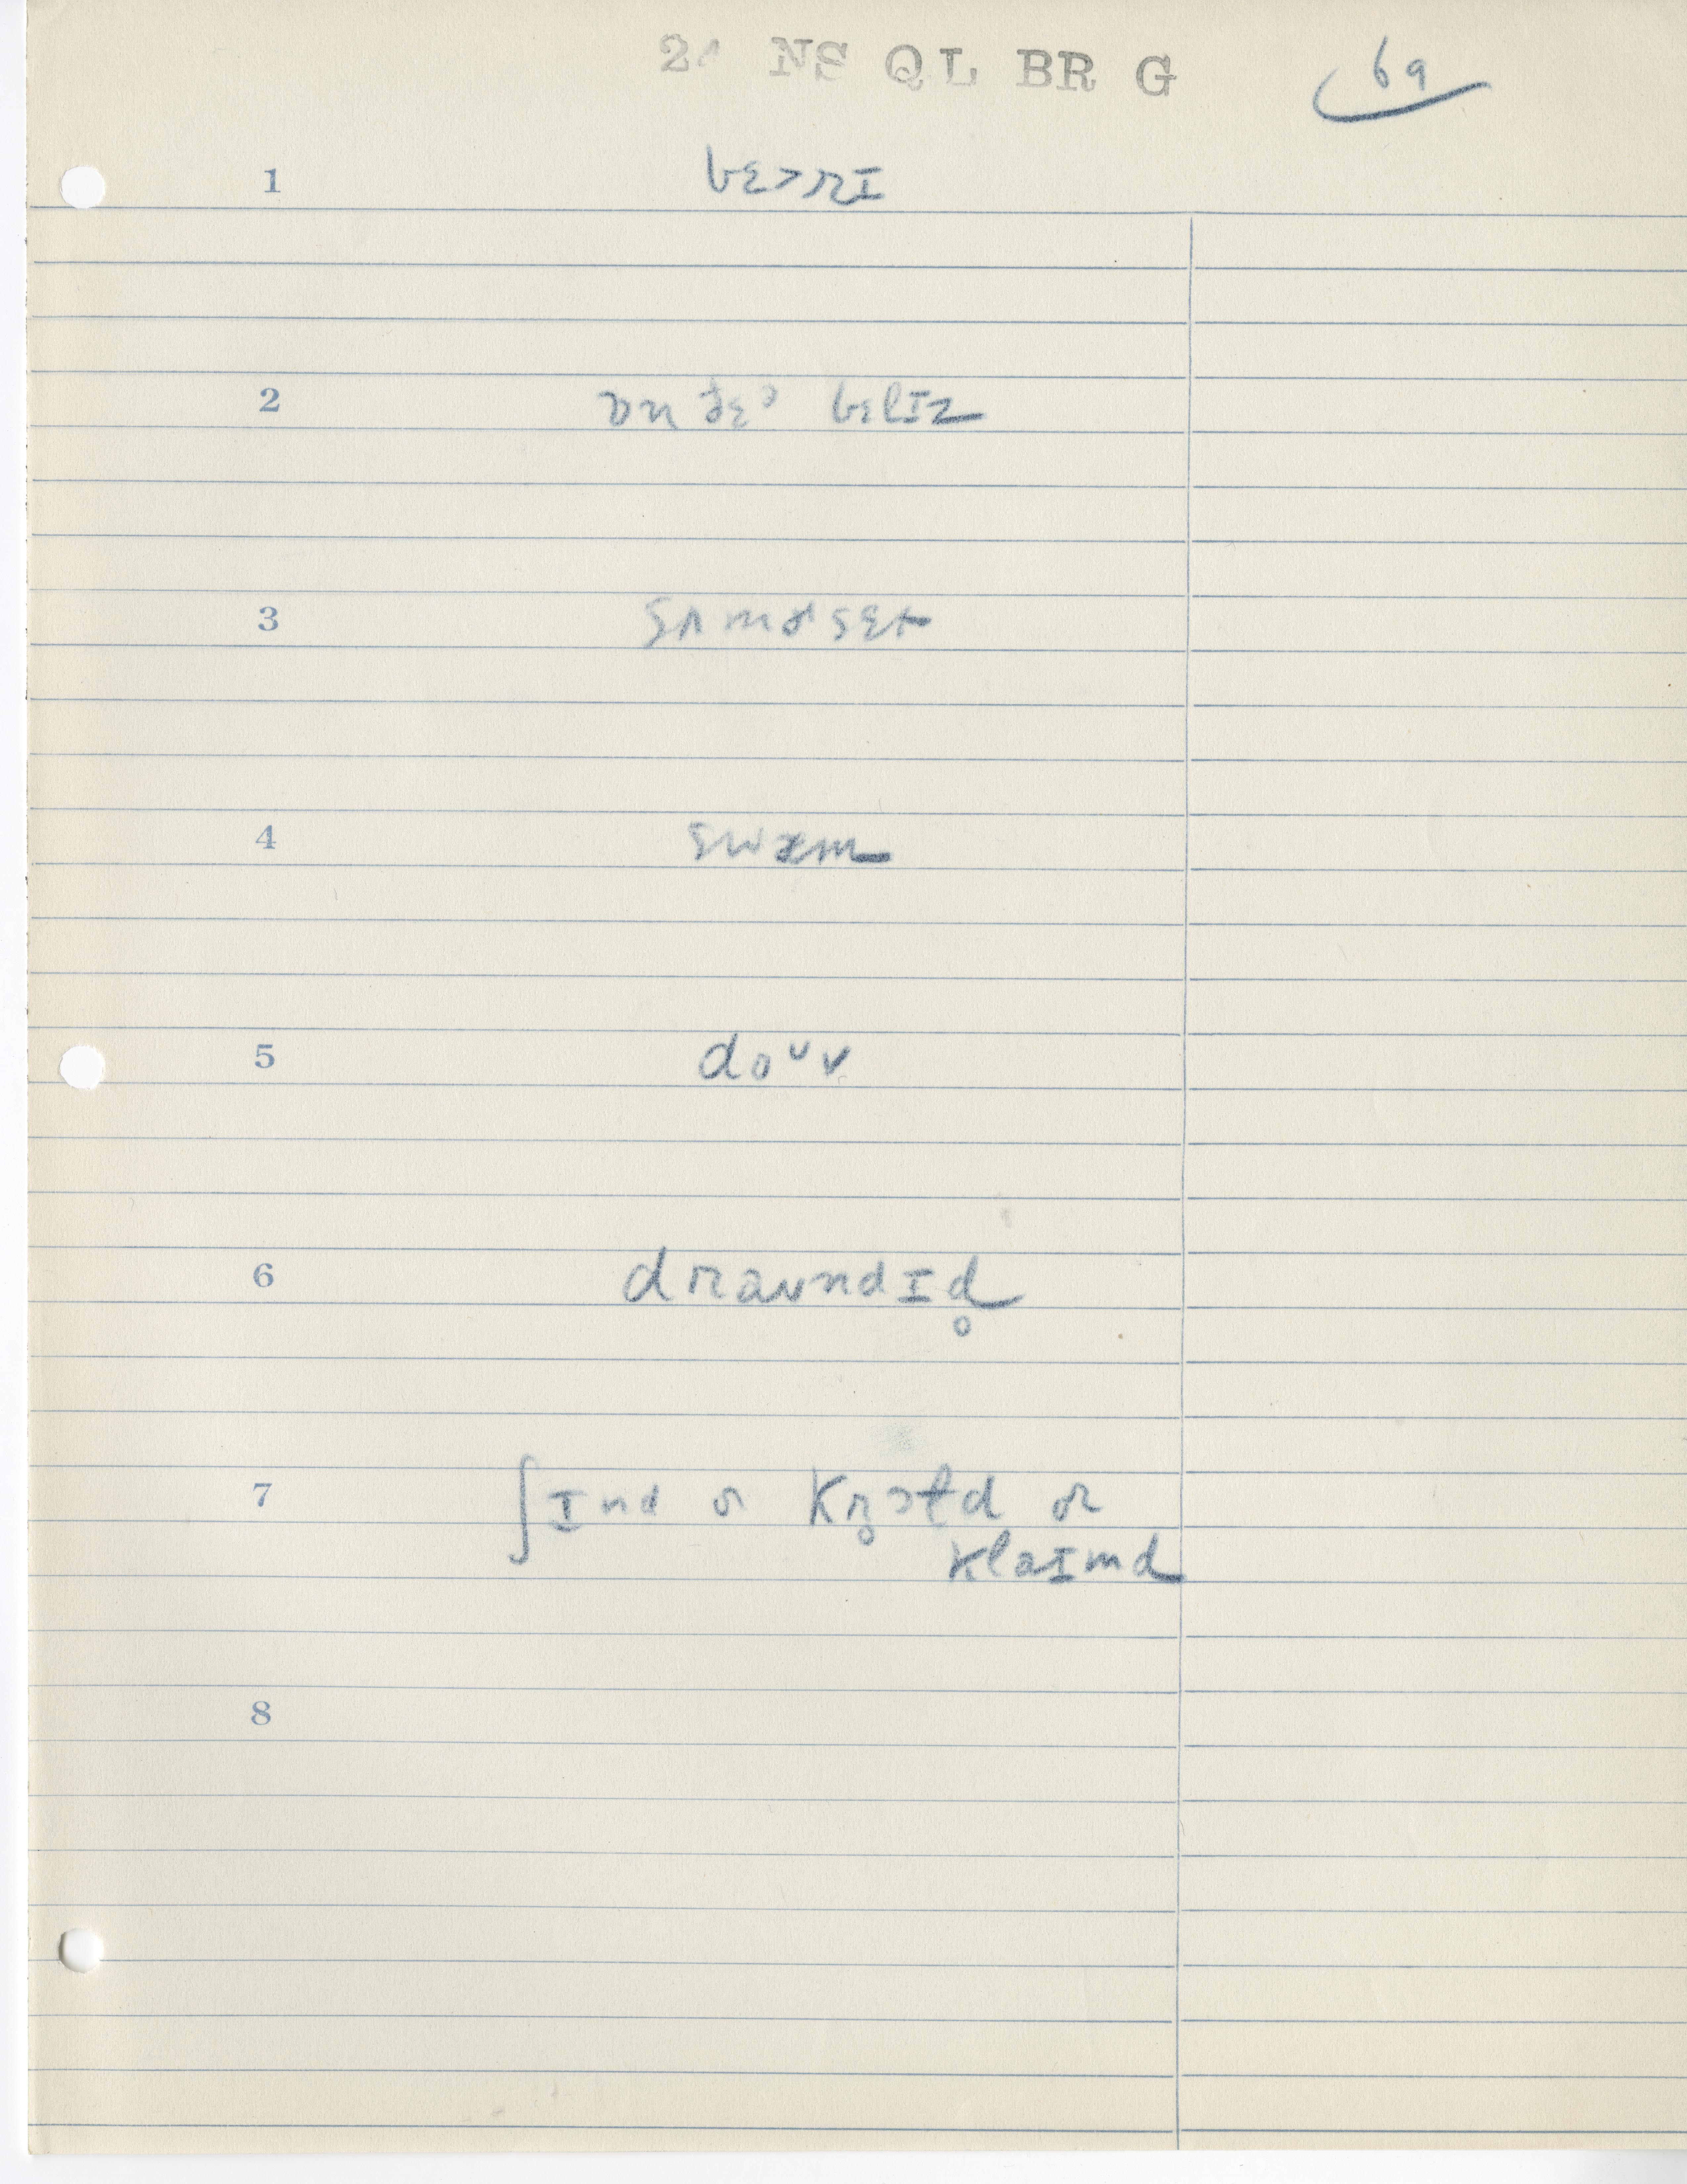 24 NS QL BR G 69
1 bɛ>rɪ
2 ɒn ðɛᵊ bɛlɪz
3 sʌmɚsɛt
4 swæm
5 doᶷv
6 draʊndɪd̥
7 ʃɪnd ɚ kr̥ɔɫd ɚ
klaɪmd
8